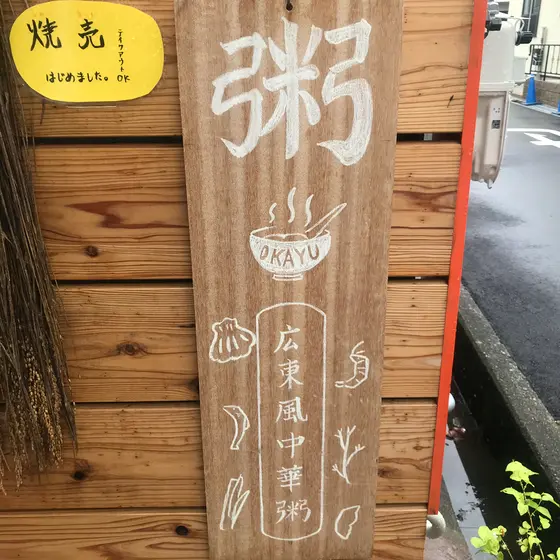 焼売
テイクアウトOK
はじめました。
粥
OKAYU
広東風中華粥